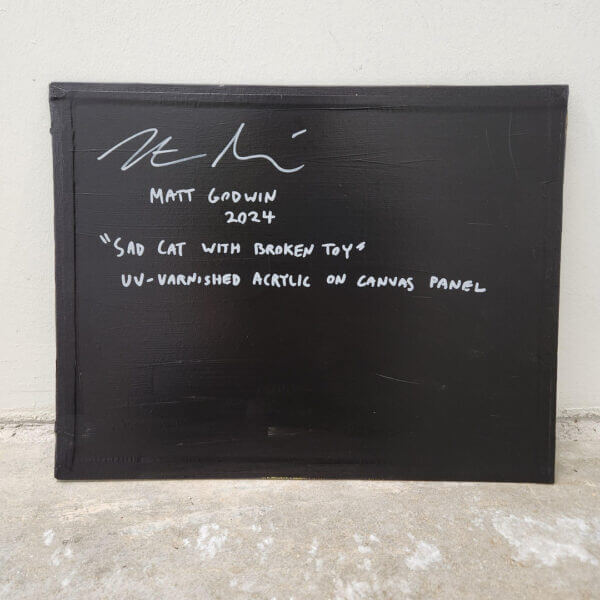 MATT GODWIN
2024
"SAD CAT WITH BROKEN TOY"
UV-VARNISHED ACRYLIC ON CANVAS PANEL